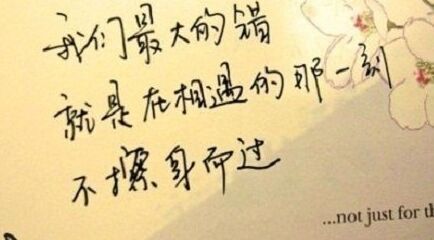 我们最大的错
就是在相遇的那一刻
不擦身而过
...not just for th